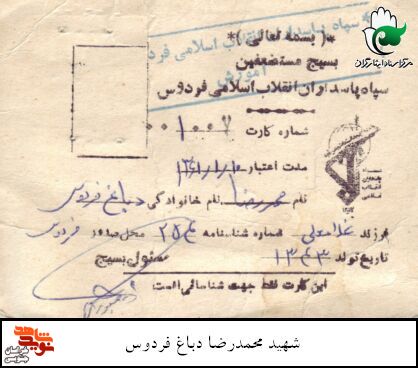 سپاه پاسداران انقلاب اسلامی فردوس
آموزش
*( بسمه تعالی )*
بسیج مستضعفین
سپاه پاسداران انقلاب اسلامی فردوس
شماره کارت ۱۰۰۷
مدت اعتبار
نام محمدرضا نام خانوادگی دباغ فردوس
فرزند غلامعلی شماره شناسنامه ۲۵ محل صدور فردوس
تاریخ تولد ۱۳۴۳ مسئول بسیج
این کارت فقط جهت شناسائی است
مرکز اسناد ایثارگران
شهید محمدرضا دباغ فردوس
نوید شاهد
خراسان جنوبی